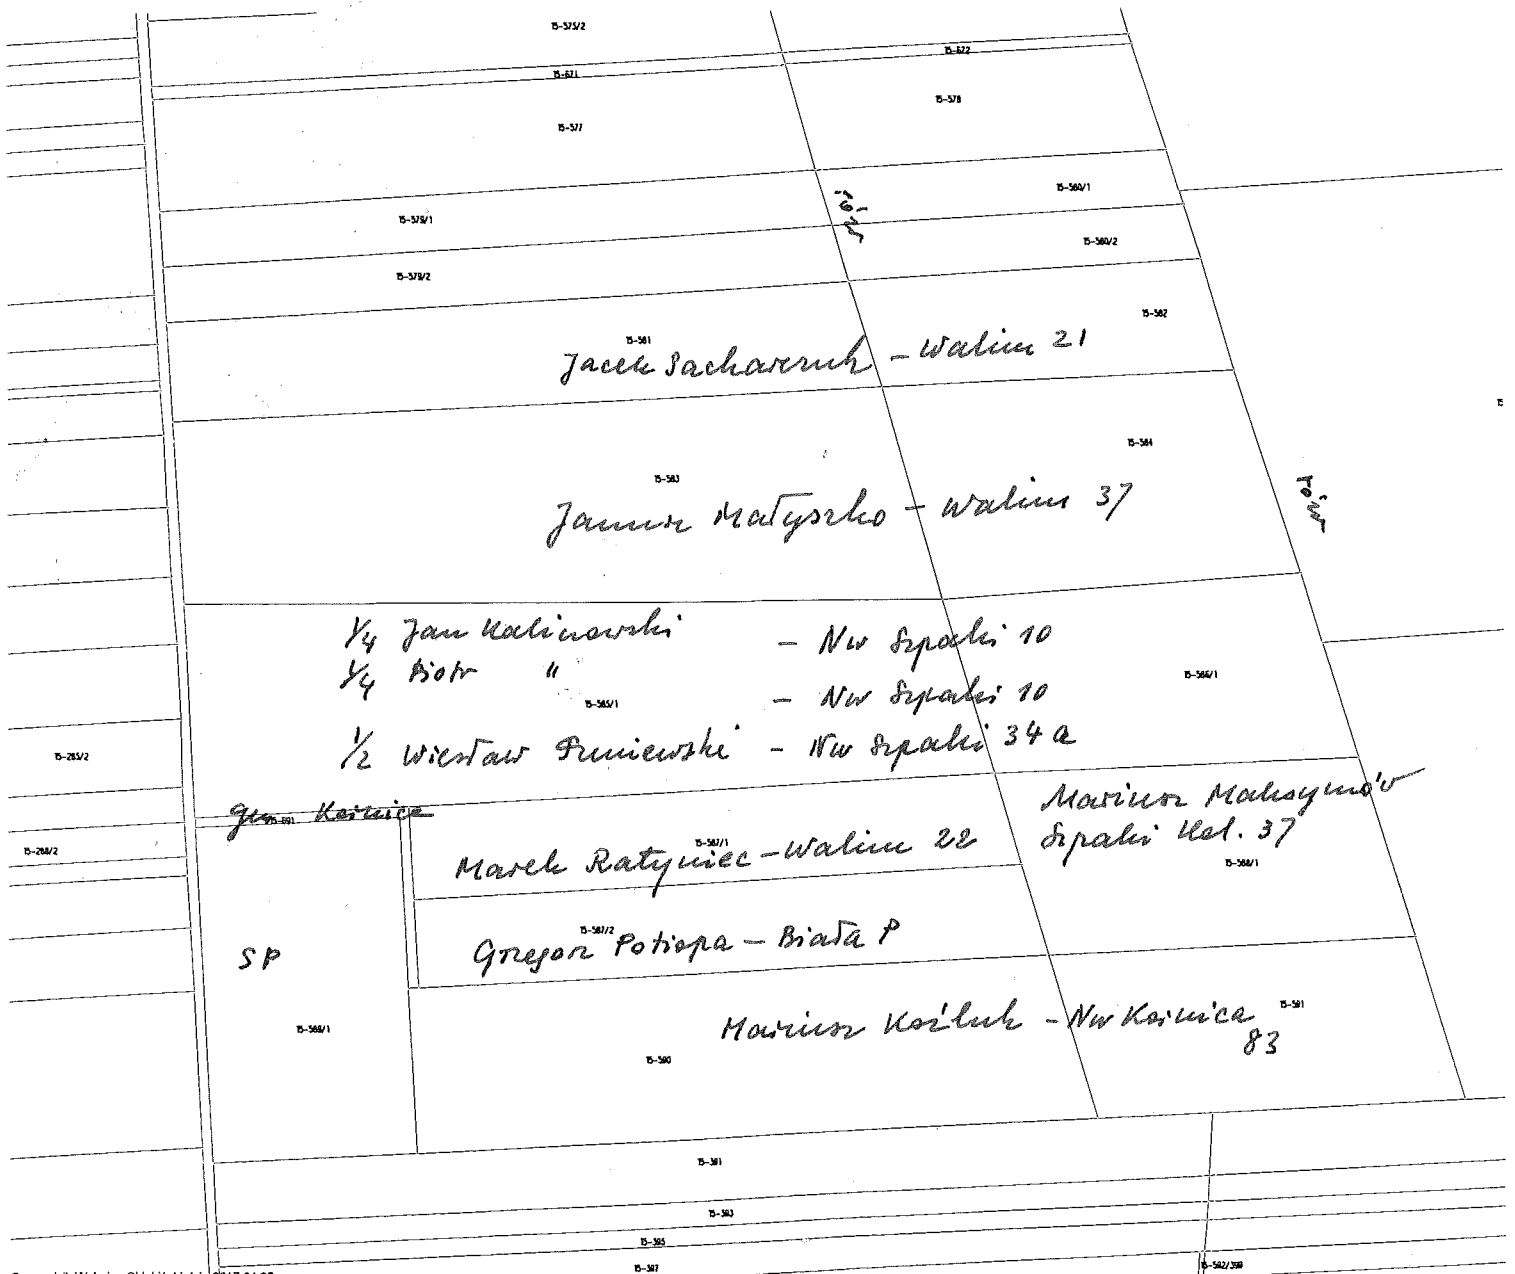 15-575/2
15-672
15-671
15-578
15-577
15-580/1
rów
15-579/1
15-580/2
15-579/2
15-582
15-581
Jacek Sacharczuk - Walim 21
15-584
15-583
Janusz Małyszko - Walim 37
rów
1/4 Jan Kalinowski - Nw Szpaki 10
1/4 Piotr " - Nw Szpaki 10
15-586/1
15-585/1
1/2 Wiesław - Nw Szpaki 34a
15-285/2
Mariusz Maksymów
Szpaki Kol. 37
gm. Kornica
15-691
15-587/1
Marek Ratyniec - Walim 22
15-288/2
15-588/1
15-587/2
Grzegorz Potiopa - Biała P
SP
15-591
Mariusz Koźluk - Nw Kornica
83
15-589/1
15-590
15-391
15-393
15-395
15-397
15-592/399